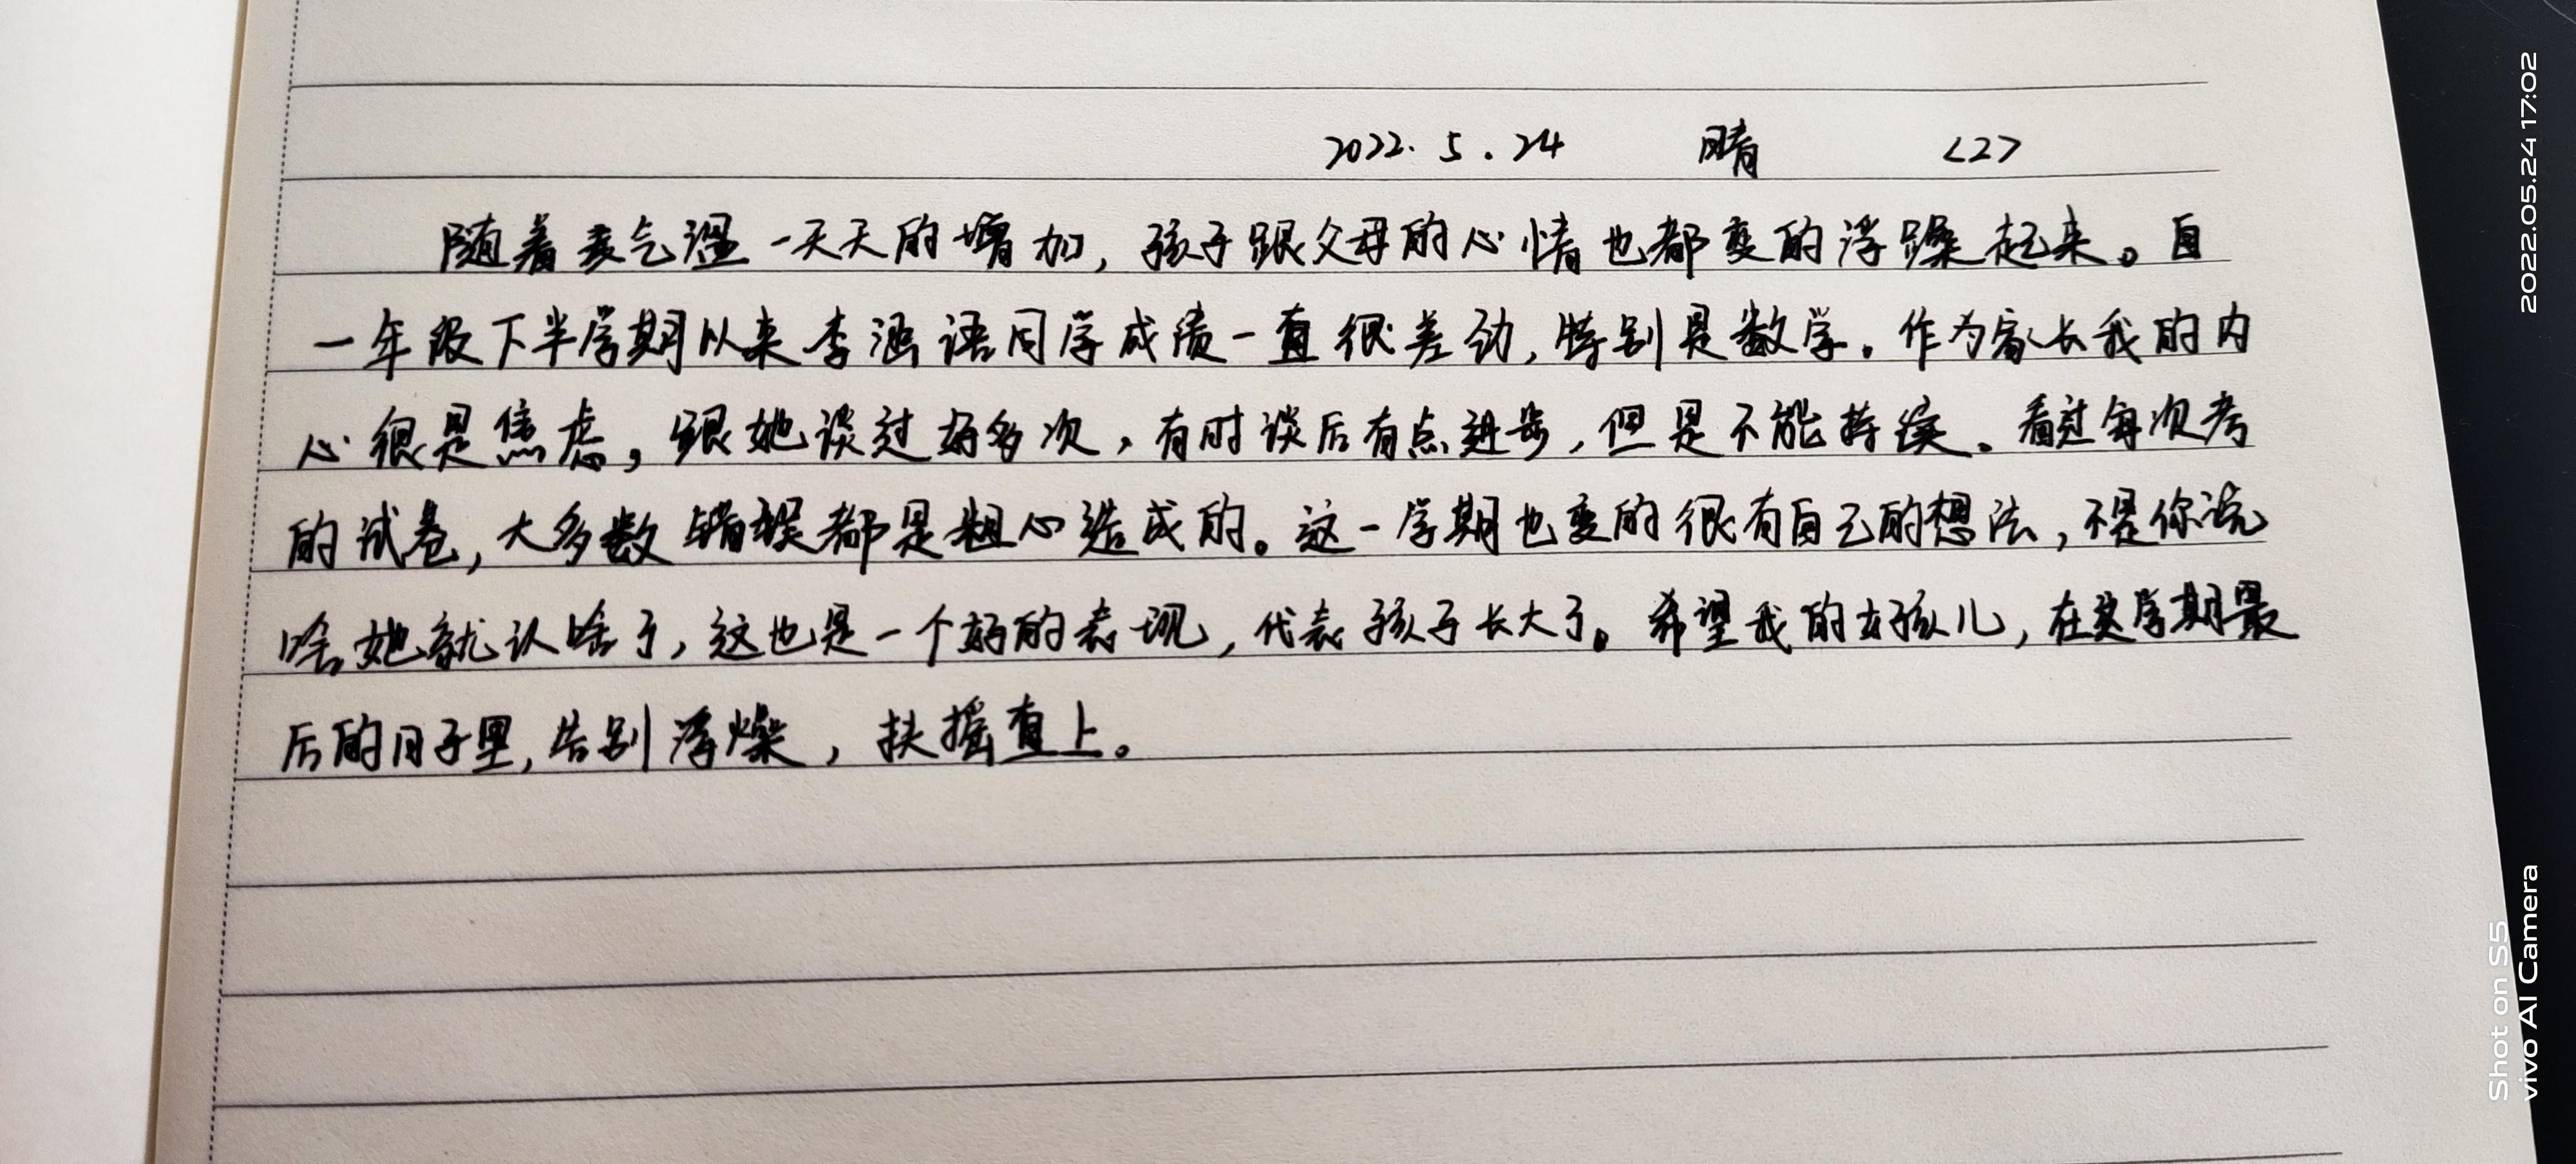 2022.5.24 晴 <2>
随着夏气温一天天的增加,孩子跟父母的心情也都变的浮躁起来。自
一年级下半学期以来李涵语同学成绩一直很差劲,特别是数学。作为家长我的内
心很是焦虑,跟她谈过好多次,有时谈后有点进步,但是不能持续。看过每次考
的试卷,大多数错误都是粗心造成的。这一学期也变的很有自己的想法,不是你说
啥她就认啥了,这也是一个好的表现,代表孩子长大了。希望我的好孩儿,在这学期最
后的日子里,告别浮燥,扶摇直上。
2022.05.24 17:02
Shot on S5
vivo AI Camera